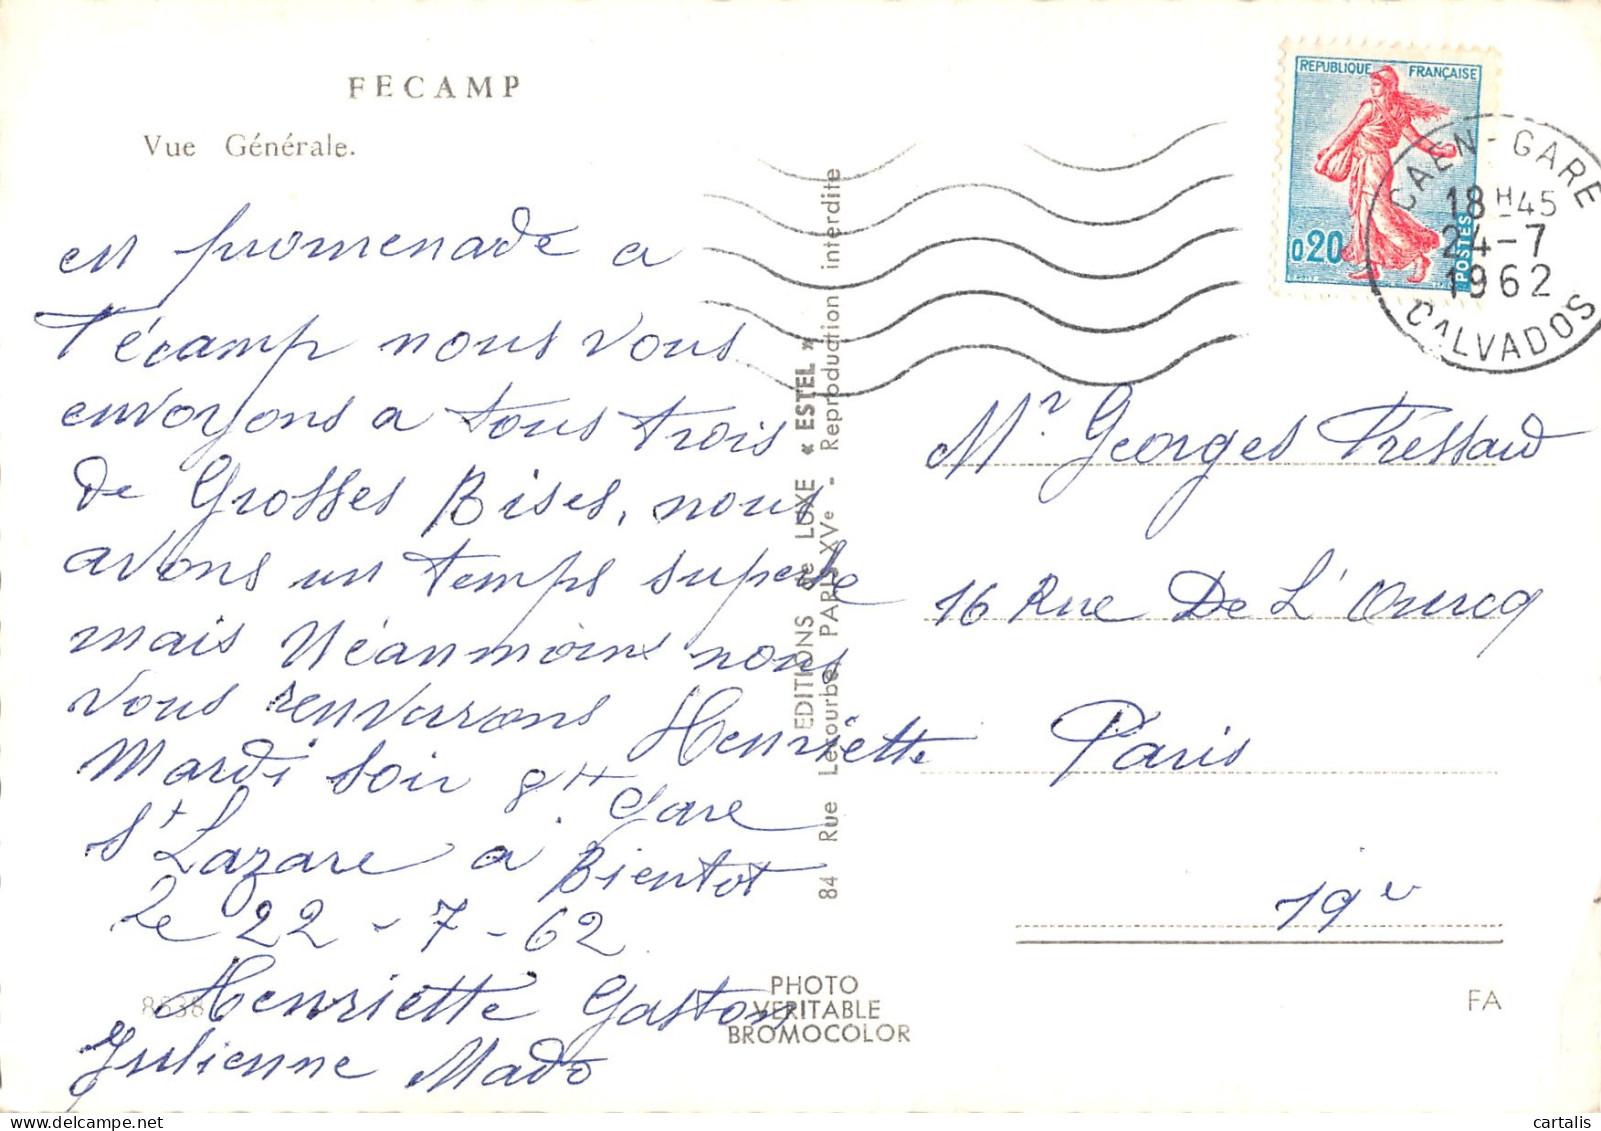 FECAMP
Vue Générale.
en promenade a
Fécamp nous vous
envoyons a tous trois
de Grosses Bises, nous
avons un temps superbe
mais Néanmoins nous
vous renverrons Henriette
Mardi soir 8H Gare
St Lazare a Bientot
Le 22-7-62
Henriette Gaston
Julienne Mado
8638
EDITIONS de LUXE « ESTEL »
84 Rue Lecourbe PARIS XVe - Reproduction interdite
PHOTO
VERITABLE
BROMOCOLOR
REPUBLIQUE FRANÇAISE
0,20
POSTES
CAEN-GARE
18H45
24-7
1962
CALVADOS
Mr Georges Fressard
16 Rue De L'Ourcq
Paris
19e
FA
cartalis
delcampe.net